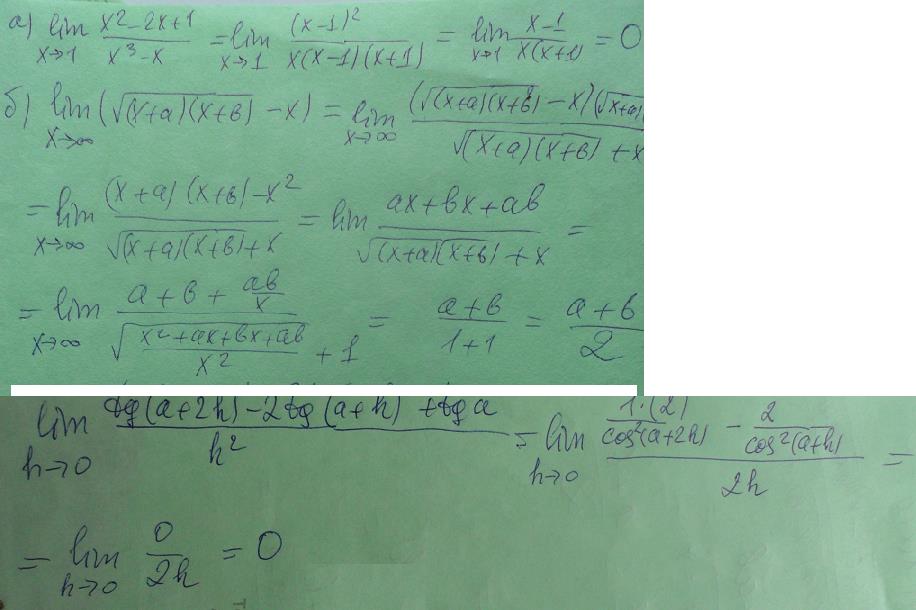 а) lim x→1 (x² - 2x + 1)/(x³ - x) = lim x→1 (x-1)²/(x(x-1)(x+1)) = lim x→1 (x-1)/(x(x+1)) = 0
б) lim x→∞ (√((x+a)(x+в)) - x) = lim x→∞ (√((x+a)(x+в)) - x)(√(x+a)/(√((x+a)(x+в)) + x
= lim x→∞ ((x+a)(x+в) - x²)/(√((x+a)(x+в)) + x) = lim (ax + вx + aв)/(√((x+a)(x+в)) + x) =
= lim x→∞ (a + в + aв/x)/(√((x² + ax + вx + aв)/x²) + 1) = (a+в)/(1+1) = (a+в)/2
lim h→0 (tg(a+2h) - 2tg(a+h) + tg a)/h² = lim h→0 (1·(2)/cos²(a+2h) - 2/cos²(a+h))/2h =
= lim h→0 0/2h = 0